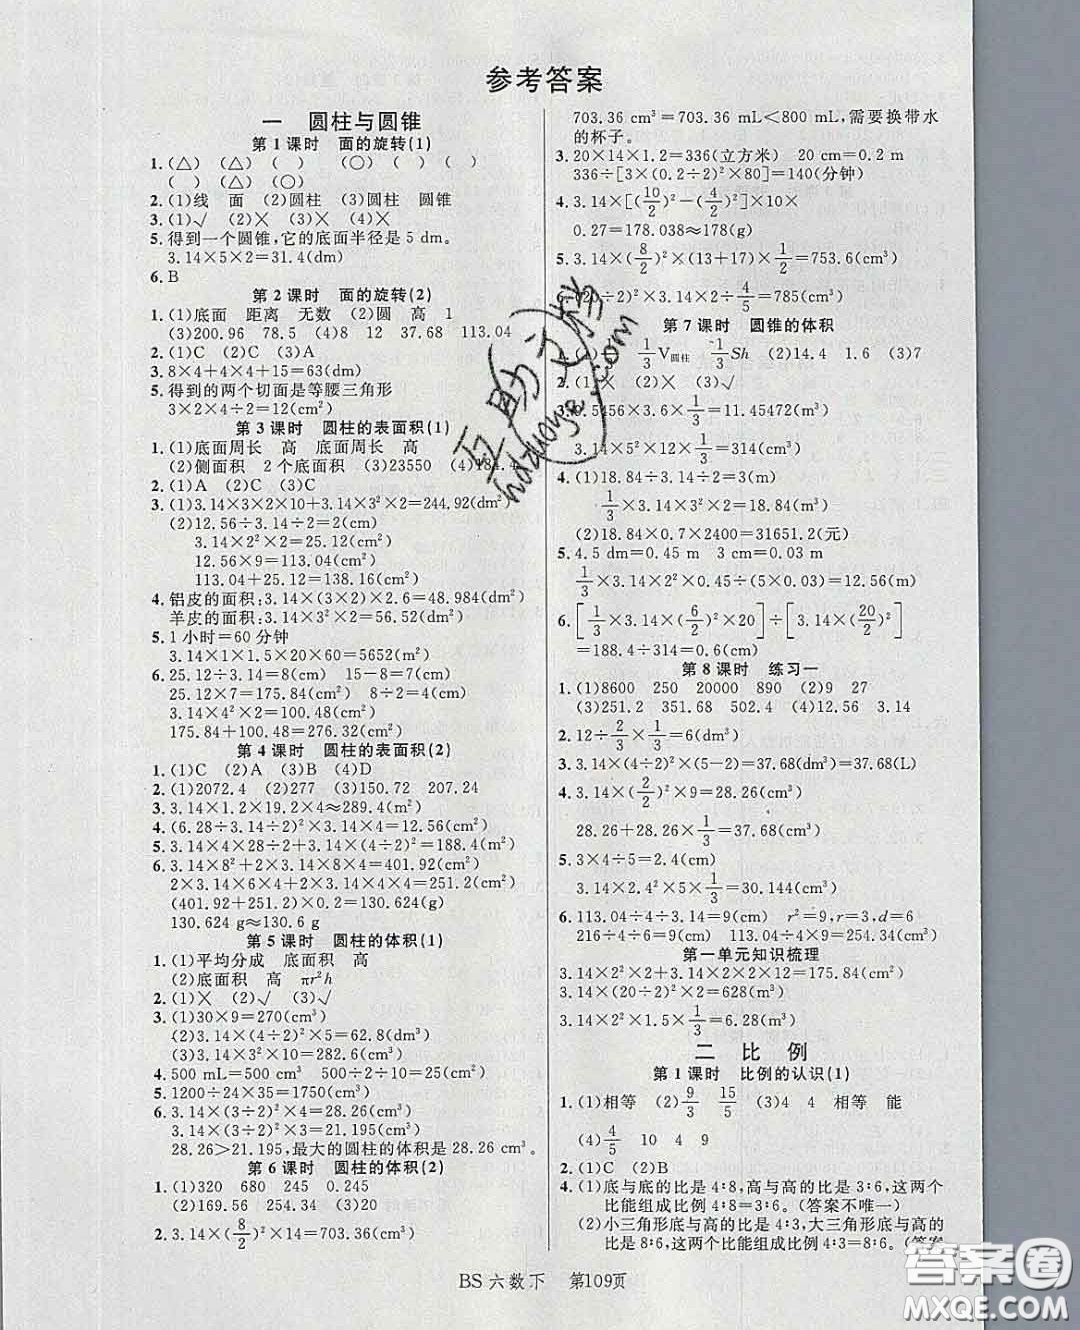 参考答案
一 圆柱与圆锥
第1课时 面的旋转(1)
1.(△) (△) ( ) (○) ( ) ( )
( ) (△) (○)
2.(1)线 面 (2)圆柱 (3)圆柱 圆锥
3.(1)√ (2)× (3)× (4)×
5.得到一个圆锥,它的底面半径是5 dm。
3.14×5×2=31.4(dm)
6.B
第2课时 面的旋转(2)
1.(1)底面 距离 无数 (2)圆 高 1
(3)200.96 78.5 (4)8 12 37.68 113.04
2.(1)C (2)C (3)A
3.8×4+4×4+15=63(dm)
5.得到的两个切面是等腰三角形
3×2×4÷2=12(cm²)
第3课时 圆柱的表面积(1)
1.(1)底面周长 高 底面周长 高
(2)侧面积 2个底面积 (3)23550 (4)184.4
2.(1)A (2)C (3)C
3.(1)3.14×3×2×10+3.14×3²×2=244.92(dm²)
(2)12.56÷3.14÷2=2(cm)
3.14×2²×2=25.12(cm²)
12.56×9=113.04(cm²)
113.04+25.12=138.16(cm²)
4.铝皮的面积:3.14×(3×2)×2.6=48.984(dm²)
羊皮的面积:3.14×3²×2=56.52(dm²)
5.1小时=60分钟
3.14×1×1.5×20×60=5652(m²)
6.25.12÷3.14=8(cm) 15-8=7(cm)
25.12×7=175.84(cm²) 8÷2=4(cm)
3.14×4²×2=100.48(cm²)
175.84+100.48=276.32(cm²)
第4课时 圆柱的表面积(2)
1.(1)C (2)A (3)B (4)D
2.(1)2072.4 (2)277 (3)150.72 207.24
3.3.14×1.2×19.2×4≈289.4(m²)
4.(6.28÷3.14÷2)²×3.14×4=12.56(cm²)
5.3.14×4×28÷2+3.14×(4÷2)²=188.4(cm²)
6.3.14×8²+2×3.14×8×4=401.92(cm²)
2×3.14×6×4+2×3.14×4×4=251.2(cm²)
(401.92+251.2)×0.2=130.624(g)
130.624 g≈130.6 g
第5课时 圆柱的体积(1)
1.(1)平均分成 底面积 高
(2)底面积 高 πr²h
2.(1)× (2)√ (3)√
3.(1)30×9=270(cm³)
(2)3.14×(4÷2)²×5=62.8(dm³)
(3)3.14×3²×10=282.6(cm³)
4.500 mL=500 cm³ 500÷2÷10=25(cm²)
5.1200÷24×35=1750(cm³)
6.3.14×(3÷2)²×4=28.26(cm³)
3.14×(3÷2)²×3=21.195(cm³)
28.26>21.195,最大的圆柱的体积是28.26 cm³。
第6课时 圆柱的体积(2)
1.(1)320 680 245 0.245
(2)169.56 254.34 (3)20
2.3.14×(8/2)²×14=703.36(cm³)
703.36 cm³=703.36 mL<800 mL,需要换带水
的杯子。
3.20×14×1.2=336(立方米) 20 cm=0.2 m
336÷[3×(0.2÷2)²×80]=140(分钟)
4.3.14×[(10/2)²-(4/2)²]×10×
0.27=178.038≈178(g)
5.3.14×(8/2)²×(13+17)×1/2=753.6(cm³)
(20÷2)²×3.14×2÷4/5=785(cm³)
第7课时 圆锥的体积
1/3 V圆柱 1/3 Sh (2)14.4 1.6 (3)7
2.(1)× (2)× (3)√
3.9.5456×3.6×1/3=11.45472(m³)
3.14×5²×12×1/3=314(cm³)
4.(1)18.84÷3.14÷2=3(m)
1/3×3.14×3²×2=18.84(m³)
(2)18.84×0.7×2400=31651.2(元)
5.4.5 dm=0.45 m 3 cm=0.03 m
1/3×3.14×2²×0.45÷(5×0.03)=12.56(m)
6.[1/3×3.14×(6/2)²×20]÷[3.14×(20/2)²]
=188.4÷314=0.6(cm)
第8课时 练习一
1.(1)8600 250 20000 890 (2)9 27
(3)251.2 351.68 502.4 (4)12.56 3.14
2.12÷2/3×1/3=6(dm³)
3.3.14×(4÷2)²×(5-2)=37.68(dm³)=37.68(L)
4.3.14×(2/2)²×9=28.26(cm³)
28.26+28.26×1/3=37.68(cm³)
5.3×4÷5=2.4(cm)
3.14×2.4²×5×1/3=30.144(cm³)
6.113.04÷4÷3.14=9(cm) r²=9,r=3,d=6
216÷4÷6=9(cm) 3.14×3²×9=254.34(cm³)
第一单元知识梳理
3.14×2²×2+3.14×2×2×12=175.84(cm²)
3.14×(20÷2)²×2=628(m³)
3.14×2²×1.5×1/3=6.28(m³)
二 比例
第1课时 比例的认识(1)
1.(1)相等 (2)9/3 15/5 (3)4 4 相等 能
(4)4/5 10 4 9
2.(1)C (2)B
4.(1)底与底的比是4:8,高与高的比是3:6,这两个
比能组成比例4:8=3:6。(答案不唯一)
(2)小三角形底与高的比是4:3,大三角形底与高的
比是8:6,这两个比能组成比例4:3=8:6。(答案
BS六数下 第109页
互助文档
huzuoye.com
答案圈
MXQE.COM